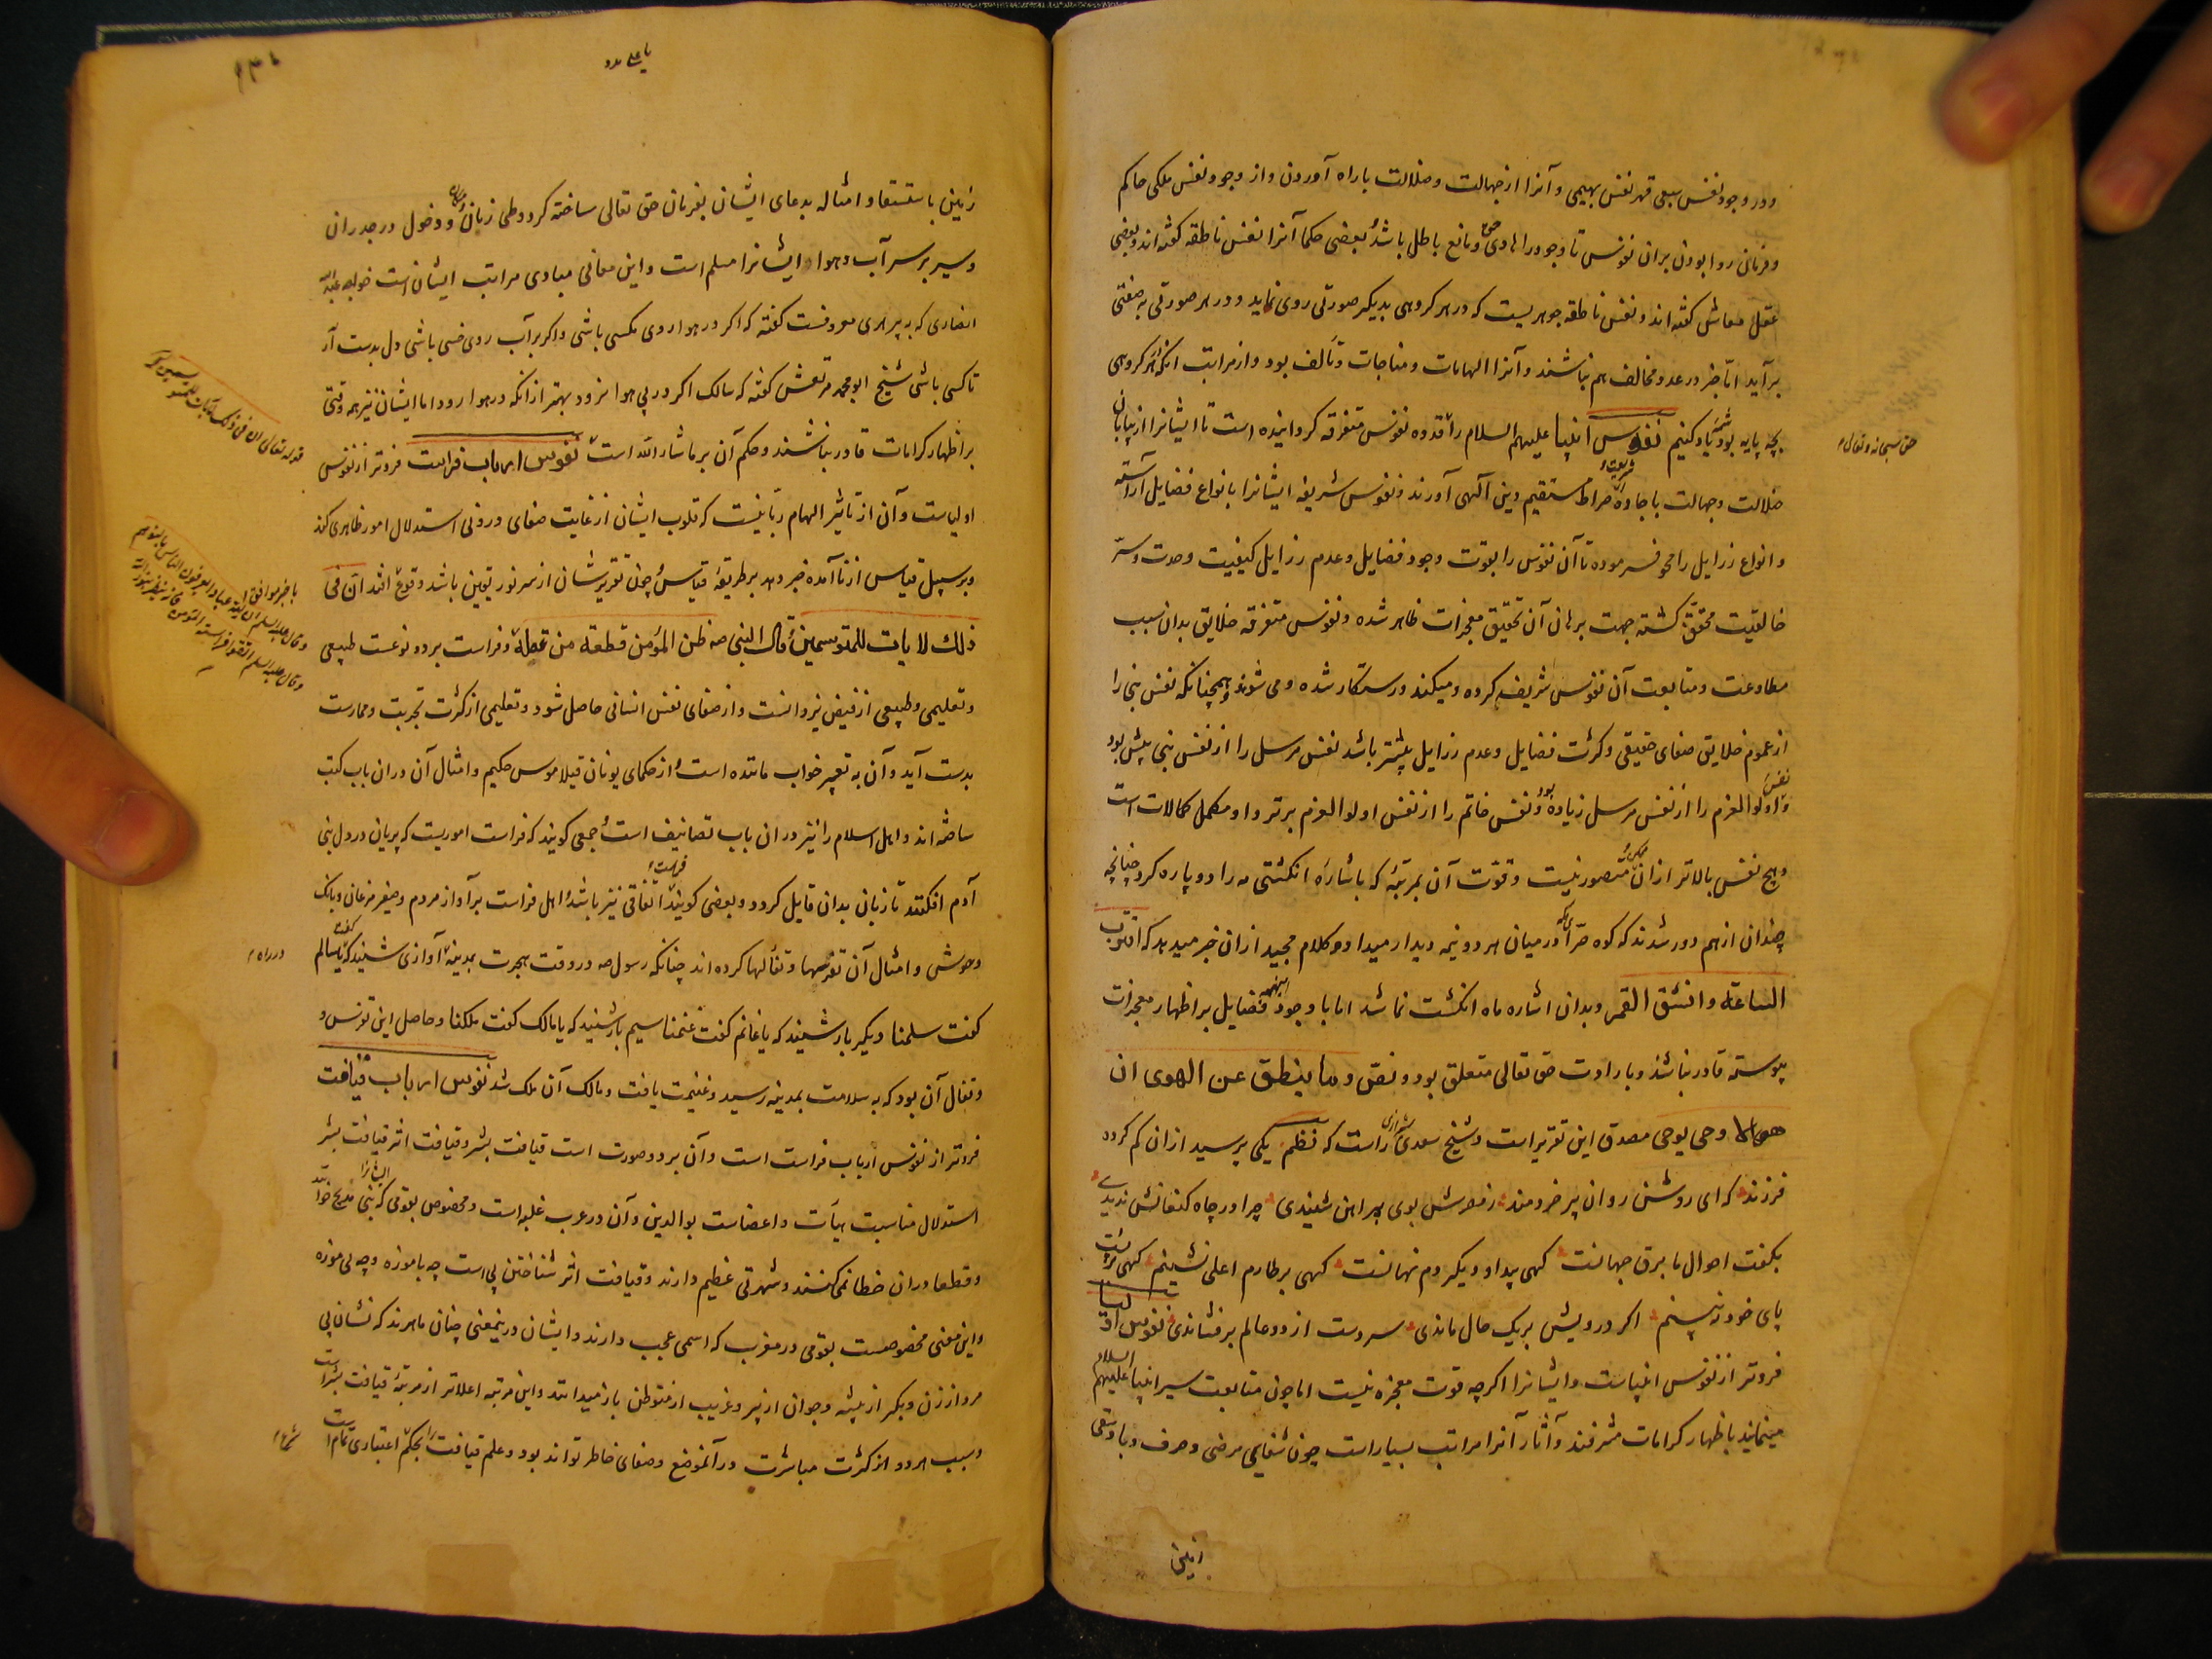 ودر وجود نفس سبعی قهر نفس بهیمی و آنرا از جهالت و ضلالت باراه آوردن و از وجود نفس ملکی حاکم
و فرمان روا بودن بران نفوس تا وجود را هادی حق و مانع باطل باشد بعضی حکما آنرا نفس ناطقه گفته‌اند و بعضی
عقل معاش گفته‌اند و نفس ناطقه جوهریست که در هر گروهی بدیگر صورتی روی نماید و در هر صورتی به صفتی
برآید اما ضد و مخالف هم نباشند و آنرا الهامات و مناجات و تألف بود و از مراتب آنکه هر گروهی
بچه پایه بود یاد کنیم نفوس انبیا علیهم السلام را قدوه نفوس متفرقه گردانیده است تا ایشانرا از بیابان
حق سبحانه وتعالی
ضلالت و جهالت با جاده شریعت و صراط مستقیم دین الهی آورند و نفوس شریفه ایشانرا بانواع فضایل آراسته
و انواع رزایل را محو فرموده تا آن نفوس را بقوت وجود فضایل و عدم رزایل کیفیت وحدت و سر
خالقیت محقق گشته جهت برهان آن تحقیق معجزات ظاهر شده و نفوس متفرقه خلایق بدان سبب
مطاوعت و متابعت آن نفوس شریف کرده و میکند و رستکار شده و می شوند و همچنانکه نفس نبی را
از عموم خلایق صفای حقیقی و کثرت فضایل و عدم رزایل بیشتر باشد نفس مرسل را از نفس نبی بیش بود
و نفس اولوالعزم را از نفس مرسل زیاده بود و نفس خاتم را از نفس اولوالعزم برتر و او مکمل کمالات است
و هیچ نفس بالاتر ازان متصور نیست و قوت آن بمرتبه که باشاره انکشتی مه را دو پاره کرد چنانچه
چندان از هم دور شدند که کوه حرا در میان هر دو نیمه دیدار میداد و کلام مجید ازان خبر میدهد که اقتربت
الساعة وانشق القمر و بدان اشاره ماه انکشت نما شد اما با وجود اینهمه فضایل بر اظهار معجزات
پیوسته قادر نباشد و بارادت حق تعالی متعلق بود و نص وما ینطق عن الهوی ان
هو الا وحی یوحی مصدق این تقریر است و شیخ سعدی شیرازی راست که نظم یکی پرسید ازان کم کرده
فرزند که ای روشن روان پیر خردمند ز مصرش بوی پیراهن شنیدی چرا در چاه کنعانش ندیدی
بگفت احوال ما برق جهانست گهی پیدا و دیگر دم نهانست گهی بر طارم اعلی نشینم گهی بر پشت
پای خود نبینم اگر درویش بر یک حال ماندی سر دست از دو عالم برفشاندی نفوس اولیا
فروتر از نفوس انبیاست و ایشانرا اگرچه قوت معجزه نیست اما چون متابعت سیر انبیا علیهم السلام
مینمایند باظهار کرامات مشرفند و آثار آنرا مراتب بسیار است چون شفای مرضی و صرف وبا و سقی
زمین
یا علی مدد
زمین باستسقا و امثاله بدعای ایشان بفرمان حق تعالی ساخته گردد و طی زمان و دخول در جدران
و سیر بر سر آب و هوا ایشانرا مسلم است و این معانی مبادی مراتب ایشان است خواجه عبدالله
انصاری که به پیر هری معروفست گفته که اگر در هوا روی مکسی باشی و اگر بر آب روی خسی باشی دل بدست آر
تا کسی باشی شیخ ابو محمد مرتعش گفته که سالک اگر در پی هوا نرود بهتر ازانکه در هوا رود اما ایشان نیز همه وقتی
بر اظهار کرامات قادر نباشند و حکم آن بر ما شاء الله است نفوس ارباب فراست فروتر از نفوس
اولیاست و آن از تأثیر الهام ربانیست که قلوب ایشان از غایت صفای درونی استدلال امور ظاهری کند
و بر سبیل قیاس از ناآمده خبر دهد بر طریقه قیاس و چون تقریرشان از سر نور یقین باشد وقوع افتد ان فی
ذلك لایات للمتوسمین و قال النبی صه ظن المؤمن قطعة من عقله و فراست بر دو نوعست طبیعی
و تعلیمی و طبیعی از فیض یزدانست و از صفای نفس انسانی حاصل شود و تعلیمی از کثرت تجربت و ممارست
بدست آید و آن به تعبیر خواب مانتده است و از حکمای یونان فیلاموس حکیم و امثال آن دران باب کتب
ساخته‌اند و اهل اسلام را نیز دران باب تصانیف است جمعی گویند که فراست اموریست که پریان در دل بنی
آدم افکنند تا زبان بدان قایل گردد و بعضی گویند فراست اتفاقی نیز باشد اهل فراست بر آواز مردم و صفیر مرغان و بانک
وحوش و امثال آن تفرسها و تفألها کرده‌اند چنانکه رسول صه در وقت هجرت بمدینه آوازی شنید که یا سالم
در راه
گفت سلمنا دیگر بار شنید که یا غانم گفت غنمنا سیم بار شنید که یا مالک گفت ملکنا و حاصل این تفرس و
و تفأل آن بود که به سلامت بمدینه رسید و غنیمت یافت و مالک آن ملک شد نفوس ارباب قیافت
فروتر از نفوس ارباب فراست است و آن بر دو صورت است قیافت بشر و قیافت اثر قیافت بشر
استدلال مناسبت هیأت و اعضاست بوالدین و آن در عرب غلبه است و مخصوص بقومی که ایشانرا بنی مدلج خوانند
و قطعا دران خطا نمی کنند و شهرتی عظیم دارند و قیافت اثر شناختن پی است چه با موزه و چه بی موزه
و این معنی مخصوصست بقومی در مغرب که اسمی عجیب دارند و ایشان درینمعنی چنان ماهرند که نشان پی
مرد از زن و بکر از ثیبه و جوان از پیر و غریب از متوطن باز میدانند و این مرتبه اعلاتر از مرتبه قیافت بشر است
و سبب هر دو از کثرت مباشرت درآنموضع و صفای خاطر تواند بود و علم قیافت را بحکم اعتباری تمام است